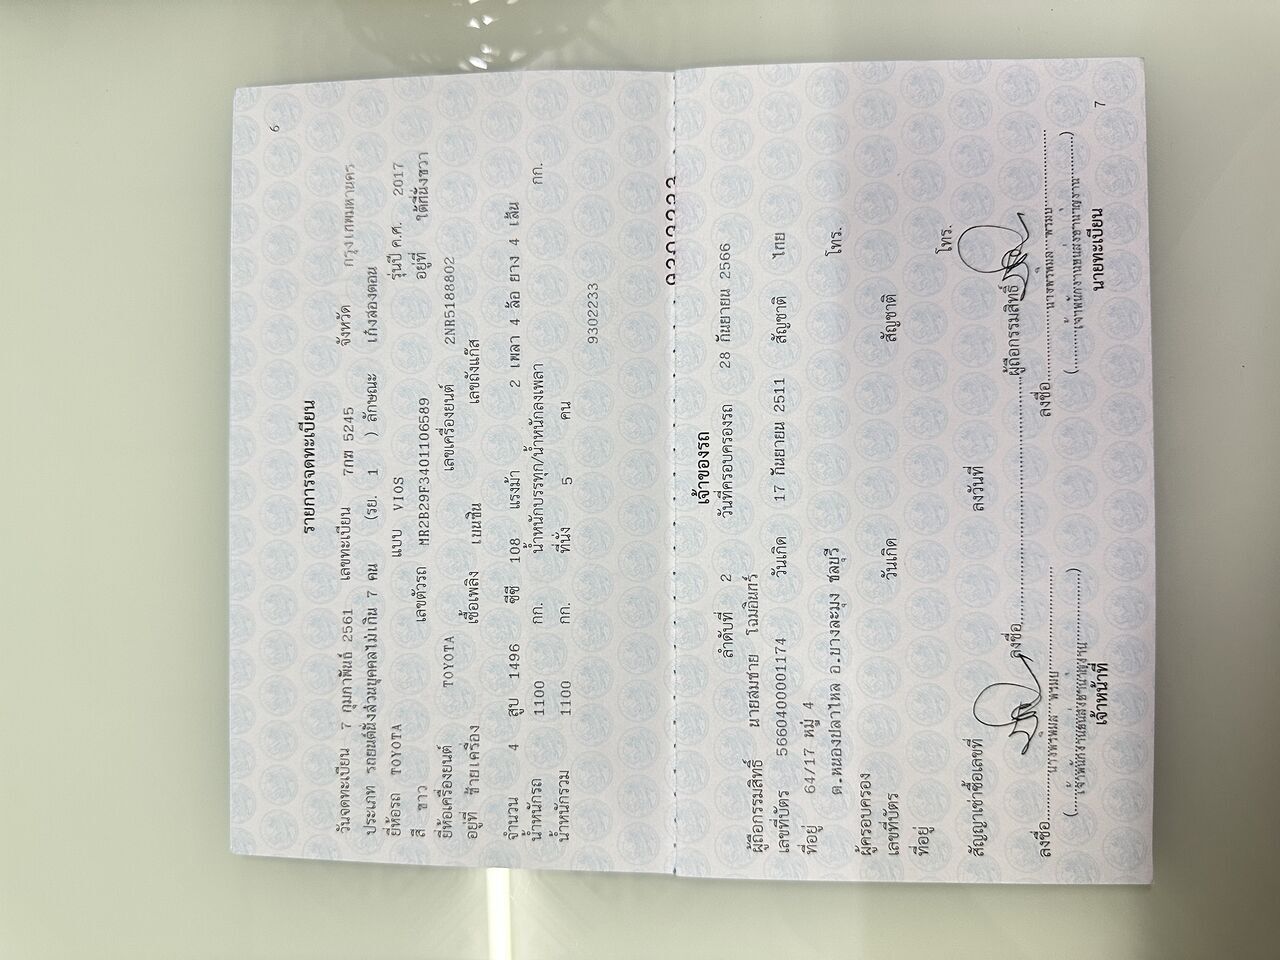 6
รายการจดทะเบียน
วันจดทะเบียน 7 กุมภาพันธ์ 2561 เลขทะเบียน 7กฆ 5245 จังหวัด กรุงเทพมหานคร
ประเภท รถยนต์นั่งส่วนบุคคลไม่เกิน 7 คน (รย. 1 ) ลักษณะ เก๋งสองตอน
ยี่ห้อรถ TOYOTA แบบ VIOS รุ่นปี ค.ศ. 2017
สี ขาว เลขตัวรถ MR2B29F3401106589 อยู่ที่ ใต้ที่นั่งขวา
ยี่ห้อเครื่องยนต์ TOYOTA เลขเครื่องยนต์ 2NR5188802
อยู่ที่ ซ้ายเครื่อง เชื้อเพลิง เบนซิน เลขถังแก๊ส
จำนวน 4 สูบ 1496 ซีซี 108 แรงม้า 2 เพลา 4 ล้อ ยาง 4 เส้น
น้ำหนักรถ 1100 กก. น้ำหนักบรรทุก/น้ำหนักลงเพลา กก.
น้ำหนักรวม 1100 กก. ที่นั่ง 5 คน
9302233
เจ้าของรถ
ลำดับที่ 2 วันที่ครอบครองรถ 28 กันยายน 2566
ผู้ถือกรรมสิทธิ์ นายสมชาย โฉมอินทร์
เลขที่บัตร 5660400001174 วันเกิด 17 กันยายน 2511 สัญชาติ ไทย
ที่อยู่ 64/17 หมู่ 4
ต.หนองปลาไหล อ.บางละมุง ชลบุรี โทร.
ผู้ครอบครอง
เลขที่บัตร วันเกิด สัญชาติ
ที่อยู่ โทร.
สัญญาเช่าซื้อเลขที่ ลงวันที่
ลงชื่อ ผู้ถือกรรมสิทธิ์
ลงชื่อ ลงชื่อ
เจ้าหน้าที่ นายทะเบียน
7